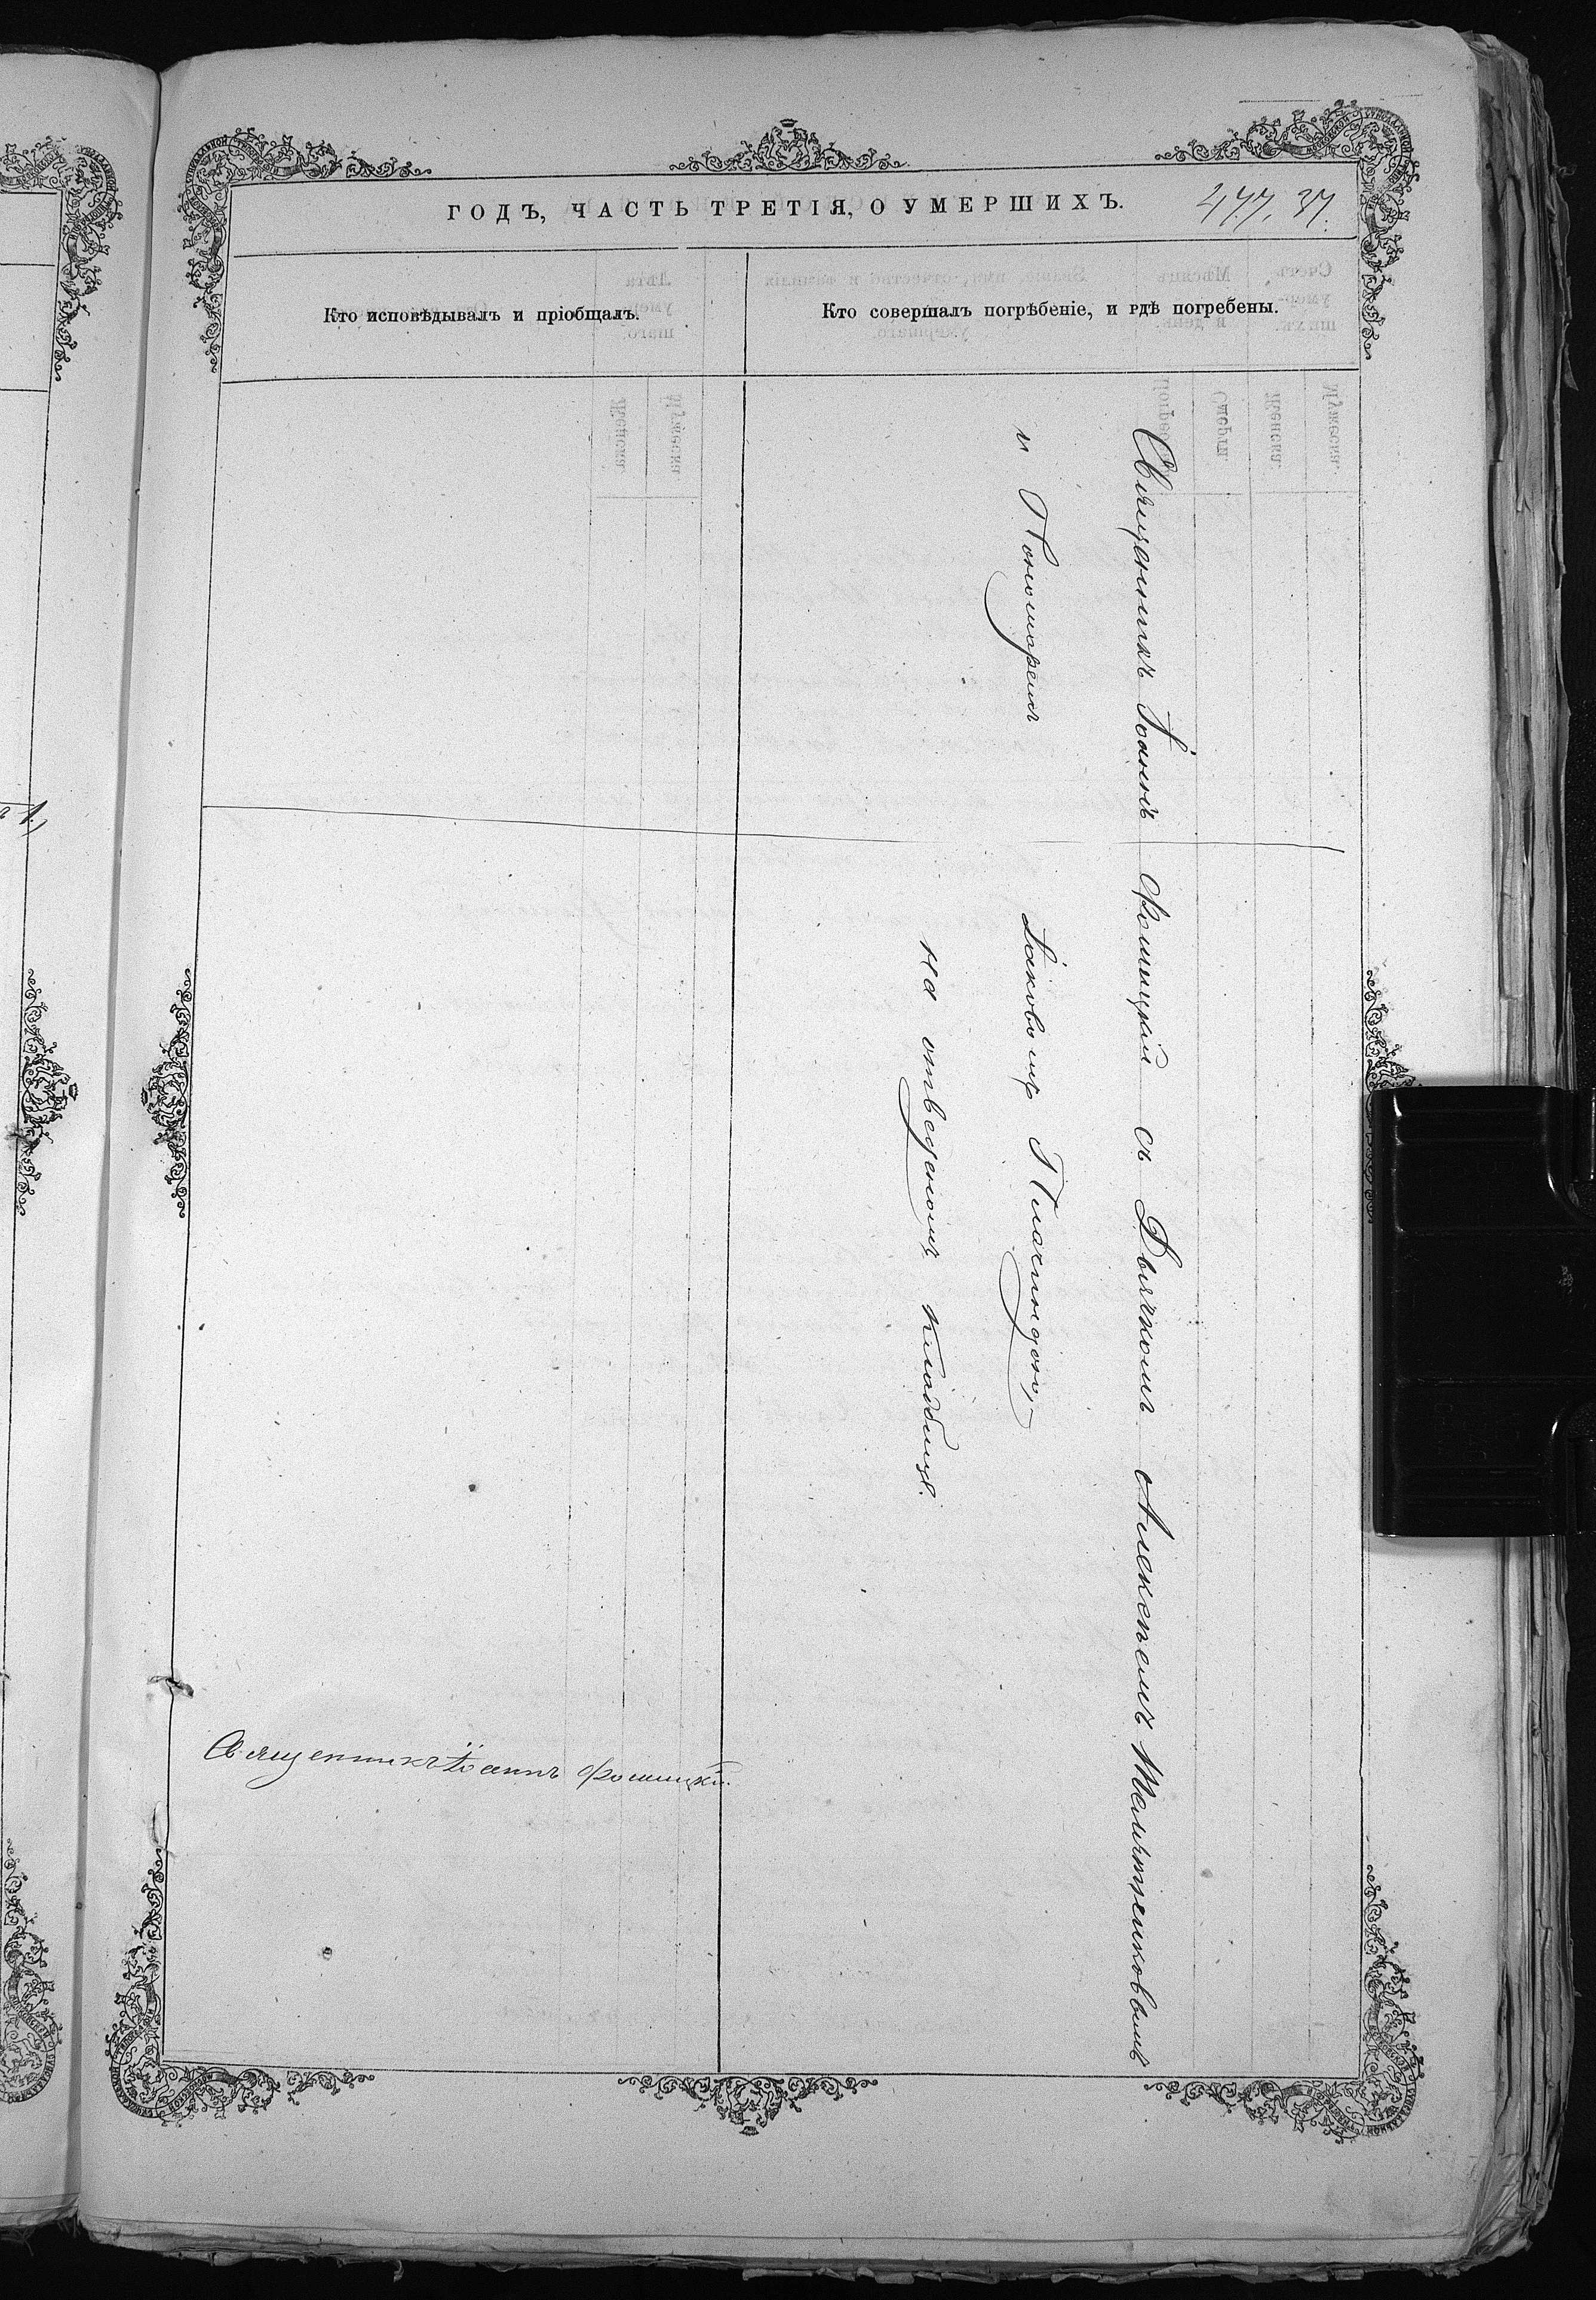 ГОДЪ, ЧАСТЬ ТРЕТІЯ, О УМЕРШИХЪ.
477. 37.
Кто исповѣдывалъ и пріобщалъ.
Кто совершалъ погрѣбеніе, и гдѣ погребены.
Священникъ Іоаннъ Фомицкій съ Дьячкомъ Алексѣемъ
и Пономаремъ Іаковомъ Плакидою,-
на отведеномъ кладбищѣ.
Священникъ Іоаннъ Фомицкій.